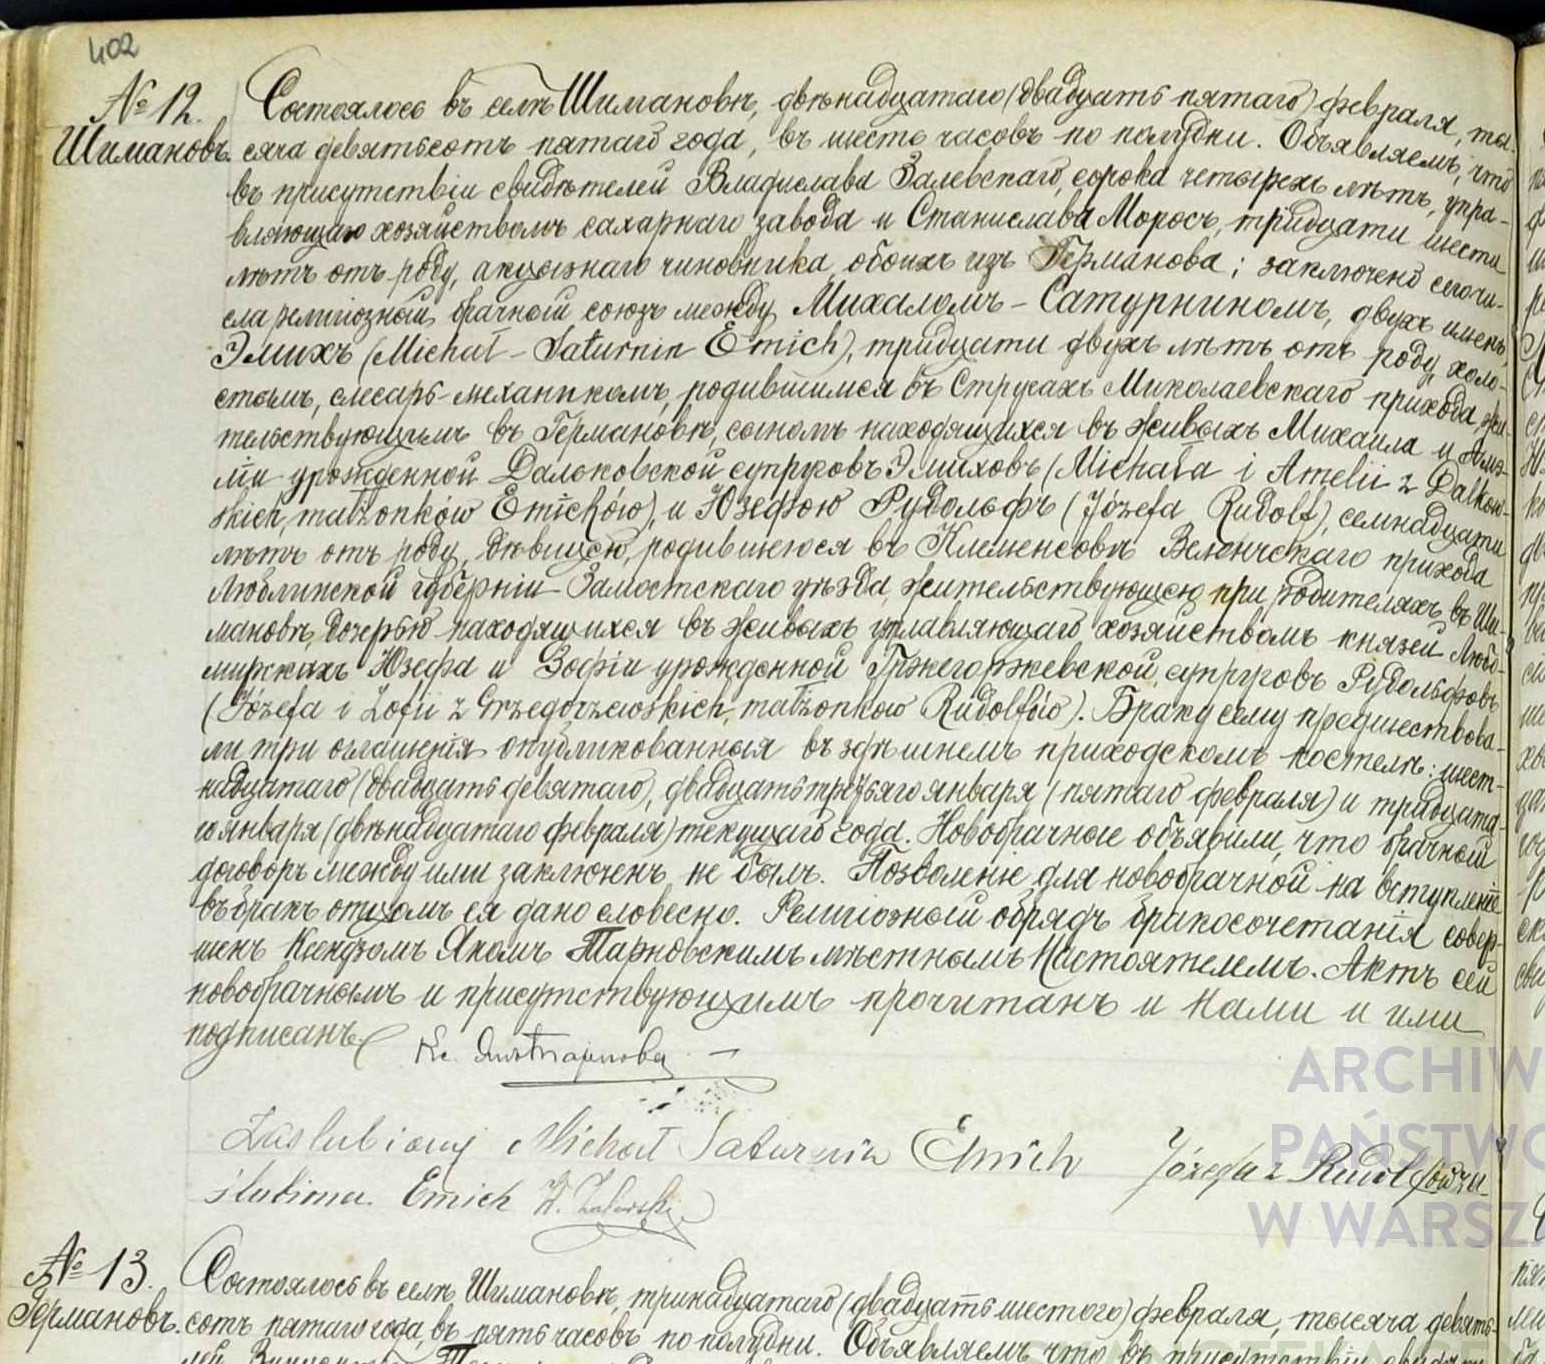 402
№ 12. Состоялось въ селѣ Шимановѣ, двѣнадцатаго (двадцать пятаго) февраля, ты-
Шимановъ. сяча девятьсотъ пятаго года, въ шесть часовъ по полудни. Объявляемъ, что
въ присутствіи свидѣтелей Владислава Залевскаго, сорока четырехъ лѣтъ, упра-
вляющаго хозяйствомъ сахарнаго завода и Станислава Моросъ, тридцати шести
лѣтъ отъ роду, акцизнаго чиновника, обоихъ изъ Германова; заключенъ сего чи-
сла религіозный брачный союзъ между Михаломъ-Сатурниномъ, двухъ именъ,
Эмихъ (Michał-Saturnin Emich), тридцати двухъ лѣтъ отъ роду, холо-
стымъ, слесарь-механикомъ, родившимся въ Стругахъ Миколаевскаго прихода, жи-
тельствующимъ въ Германовѣ, сыномъ находящихся въ живыхъ Михаила и Амэ-
ліи урожденной Дальковской супруговъ Эмиховъ (Michała i Amelii z Dalkow-
skich, małżonków Emichów), и Юзефою Рудольфъ (Józefa Rudolf), семнадцати
лѣтъ отъ роду, дѣвицею, родившеюся въ Клеменсовѣ Веленчскаго прихода
Люблинской губерніи Замостскаго уѣзда, жительствующею при родителяхъ въ Ши-
мановѣ, дочерью находящихся въ живыхъ управляющаго хозяйствомъ князей Любо-
мирскихъ Юзефа и Зофіи урожденной Гржегоржевской, супруговъ Рудольфовъ
(Józefa i Zofii z Grzegorzewskich, małżonków Rudolfów). Браку сему предшествова-
ли три оглашенія опубликованныя въ здѣшнемъ приходскомъ костелѣ: шест-
надцатаго (двадцать девятаго), двадцать третьяго января (пятаго февраля) и тридцата-
го января (двѣнадцатаго февраля) текущаго года. Новобрачные объявили, что брачный
договоръ между ими заключенъ не былъ. Позволеніе для новобрачной на вступленіе
въ бракъ отцомъ ея дано словесно. Религіозный обрядъ бракосочетанія совер-
шенъ Ксендзомъ Яномъ Тарновскимъ мѣстнымъ Настоятелемъ. Актъ сей
новобрачнымъ и присутствующимъ прочитанъ и нами и ими
подписанъ.
Zaslubiony Michał Saturnin Emich Józefa z Rudolfów
Emich W. Zalewski
№ 13. Состоялось въ селѣ Шимановѣ, тринадцатаго (двадцать шестого) февраля, тысяча девять-
Германовъ. сотъ пятаго года, въ пять часовъ по полудни. Объявляемъ что въ присутствіи
ARCHIW
PAŃSTWO
W WARSZA